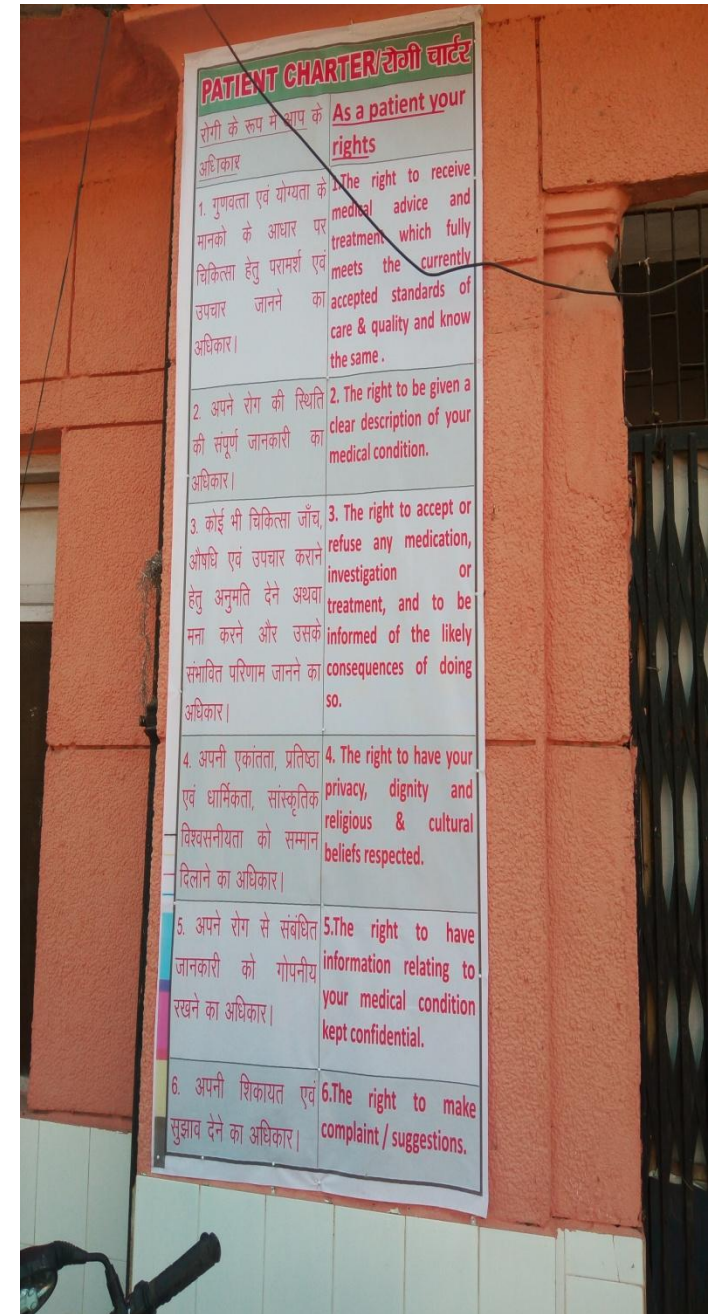 PATIENT CHARTER/रोगी चार्टर
रोगी के रूप में आप के
अधिकार
As a patient your
rights
1. गुणवत्ता एवं योग्यता के
मानको के आधार पर
चिकित्सा हेतु परामर्श एवं
उपचार जानने का
अधिकार।
1.The right to receive
medical advice and
treatment which fully
meets the currently
accepted standards of
care & quality and know
the same .
2. अपने रोग की स्थिति
की संपूर्ण जानकारी का
अधिकार।
2. The right to be given a
clear description of your
medical condition.
3. कोई भी चिकित्सा जाँच,
औषधि एवं उपचार कराने
हेतु अनुमति देने अथवा
मना करने और उसके
संभावित परिणाम जानने का
अधिकार।
3. The right to accept or
refuse any medication,
investigation or
treatment, and to be
informed of the likely
consequences of doing
so.
4. अपनी एकांतता, प्रतिष्ठा
एवं धार्मिकता, सांस्कृतिक
विश्वसनीयता को सम्मान
दिलाने का अधिकार।
4. The right to have your
privacy, dignity and
religious & cultural
beliefs respected.
5. अपने रोग से संबंधित
जानकारी को गोपनीय
रखने का अधिकार।
5.The right to have
information relating to
your medical condition
kept confidential.
6. अपनी शिकायत एवं
सुझाव देने का अधिकार।
6.The right to make
complaint / suggestions.